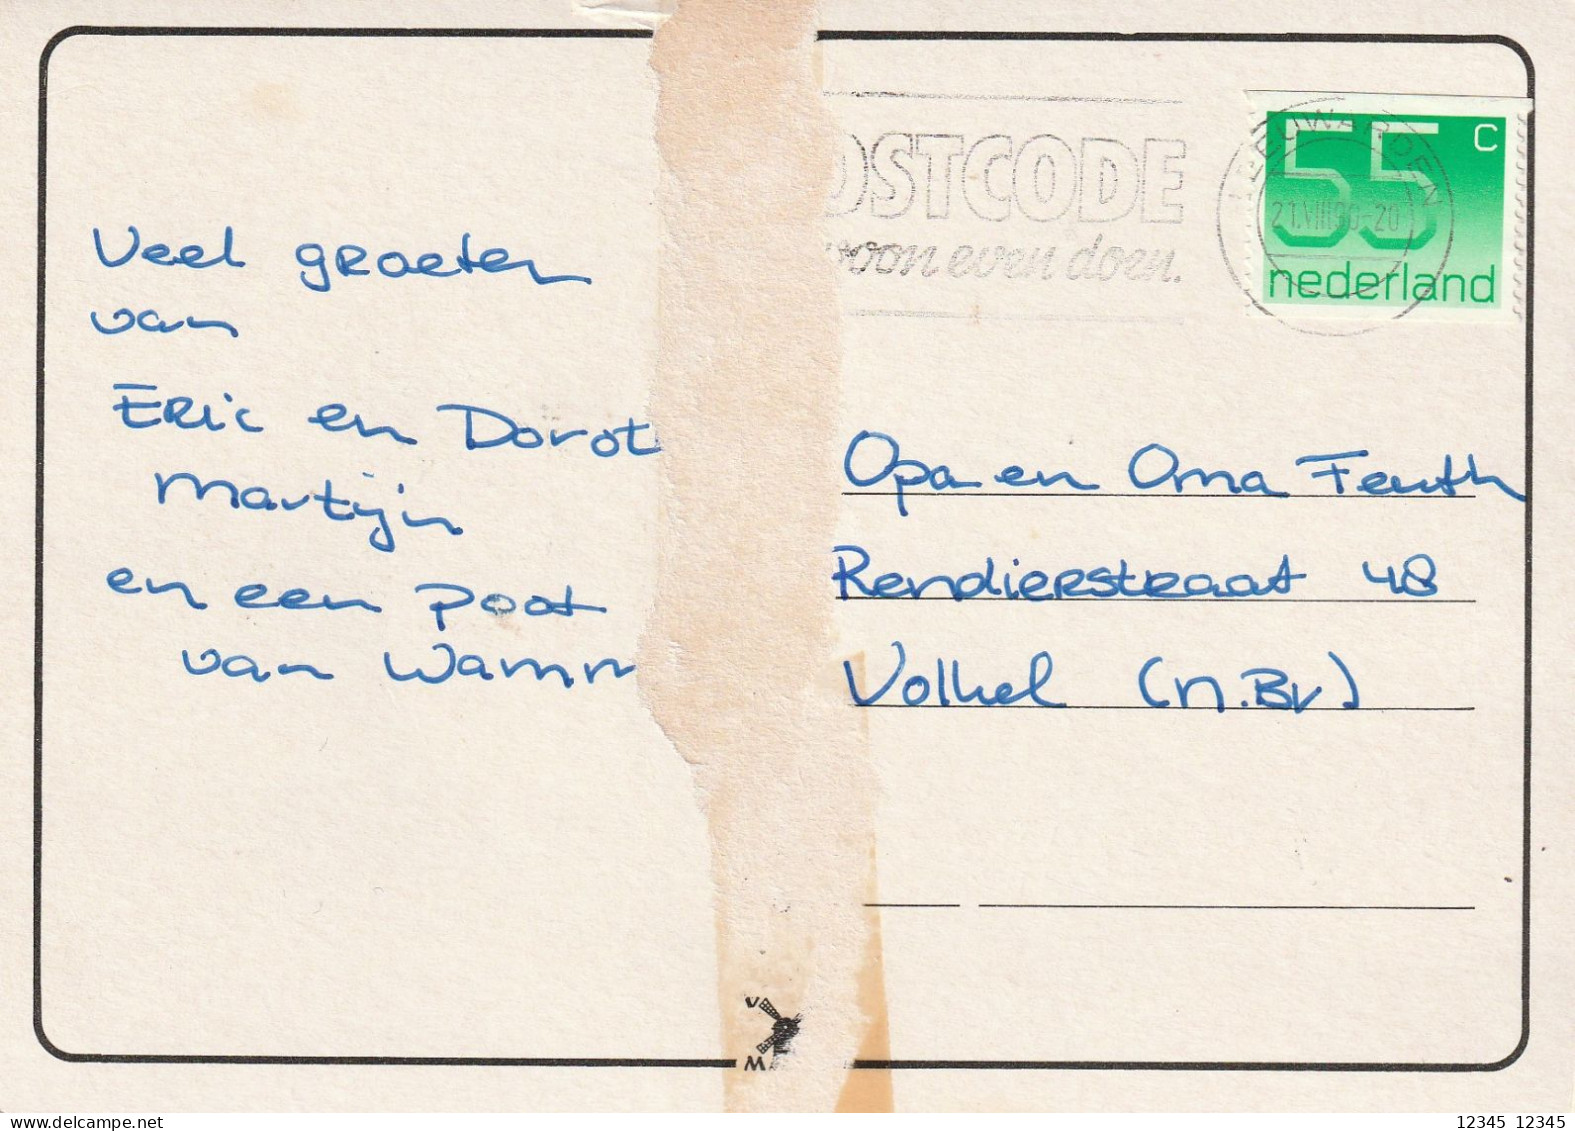 Veel groeten
van
Eric en Dorot
Martijn
en een poot
van Wamm
OSTCODE
woon even doen.
LEEUWARDEN
21.VIII.86-20
55 c
nederland
Opa en Oma Feuth
Rendierstraat 48
Volkel (N.Br)
V
W
12345 12345